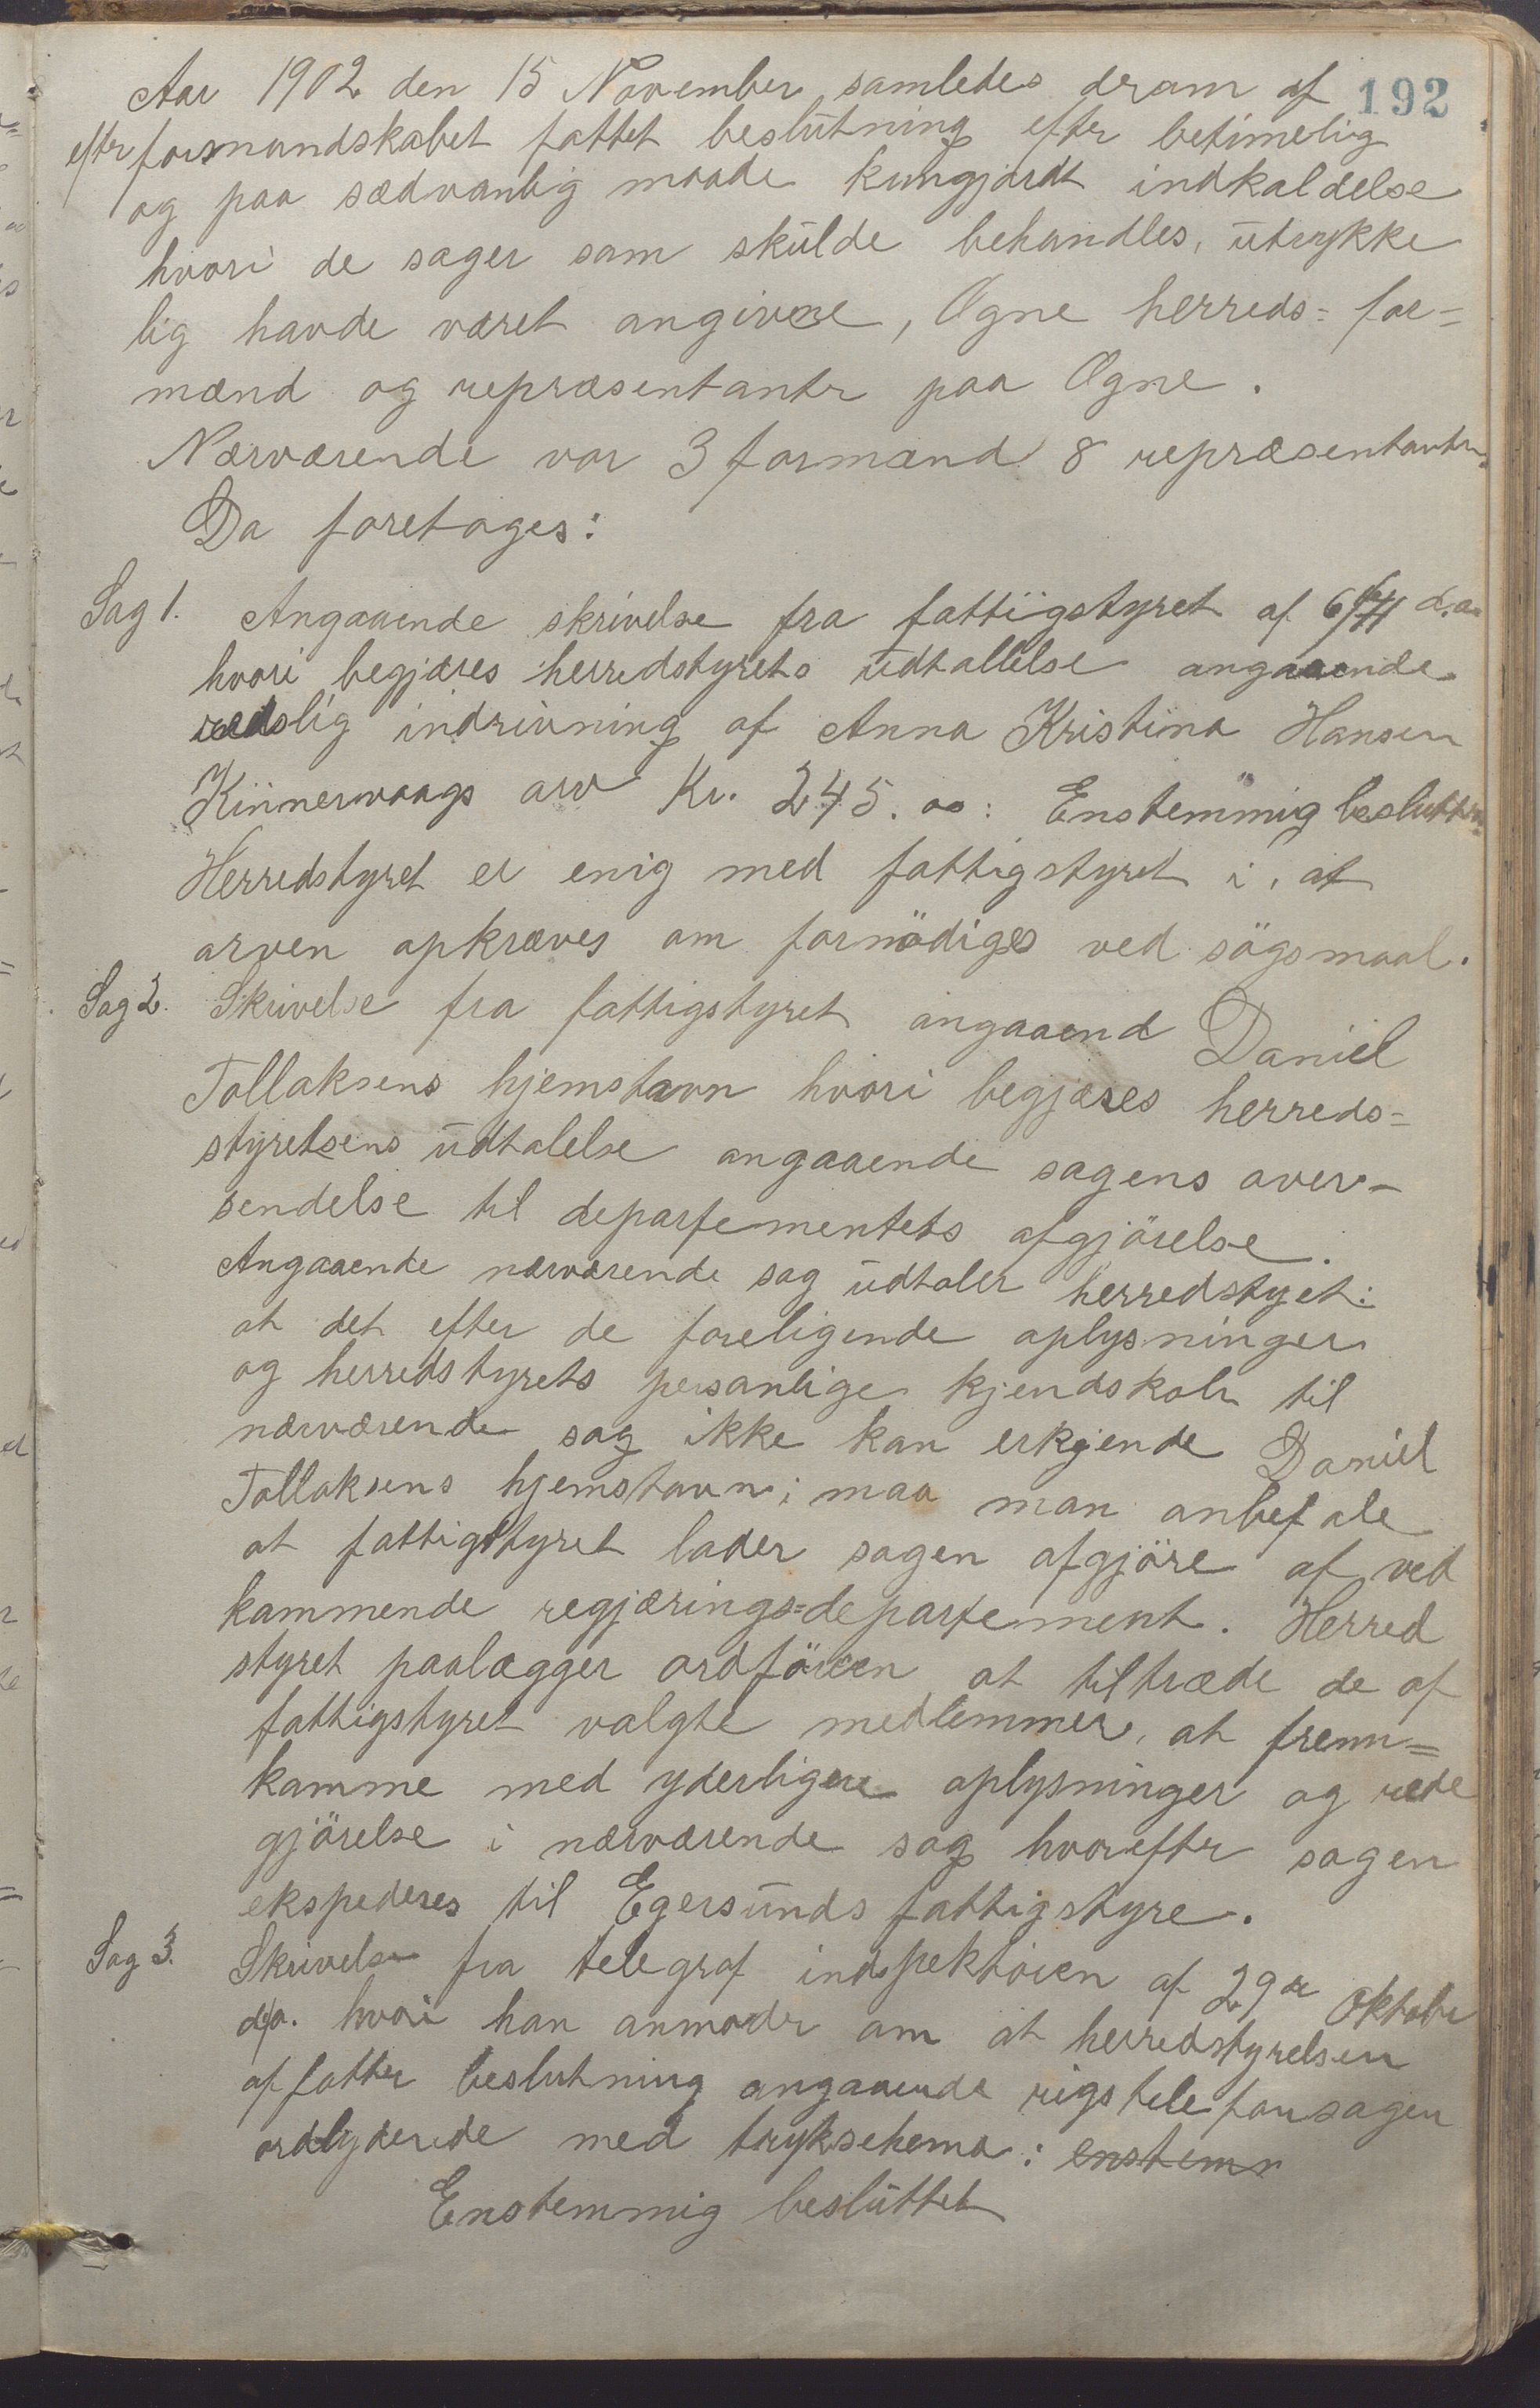 192
Aar 1902 den 15 November samledes deram af
efter formandskabet fattet beslutning efter betimelig
og paa sædvanlig maade kungjordt indkaldelse
hvori de sager som skulde behandles, utrykke
lig havde været angivne, Ogne herreds= for=
mænd og repræsentanter paa Ogne.
Nærværende var 3 formænd 8 repræsentanter.
Da foretages:
Sag 1. Angaaende skrivelse fra fattigstyret af 6/11 d.a.
hvori begjæres herredstyrets udtallelse angaaende
redslig indrivning af Anna Kristina Hansen
Kinnervaags arv Kr. 245.00: Enstemmig besluttet
Herredstyret er enig med fattigstyret i, at
arven opkræves om fornödiges ved sögsmaal.
Sag 2. Skrivelse fra fattigstyret angaaend Daniel
Tollaksens hjemstavn hvori begjæres herreds=
styrelsens udtalelse angaaende sagens over-
sendelse til departementets afgjörelse.
Angaaende nærværende sag udtaler herredstyet:
at det efter de foreligende oplysninger
og herredstyrets personlige kjendskab til
nærværende sag ikke kan erkjende Daniel
Tollaksens hjemstavn; maa man anbefale
at fattigstyret lader sagen afgjöre af ved
kommende regjærings=departement. Herred
styret paalægger ordföreren at tiltræde de af
fattigstyret valgte medlemmer, at frem=
komme med yderligere oplysninger og rede
gjörelse i nærværende sag hvorefter sagen
ekspederes til Egersunds fattigstyre.
Sag 3. Skrivelse fra telegraf indspektören af 29de Oktober
d.a. hvori han anmoder om at herredstyrelsen
affatter beslutning angaaende rigstelefonsagen
ordlydende med tryksehema: enstemm
Enstemmig besluttet